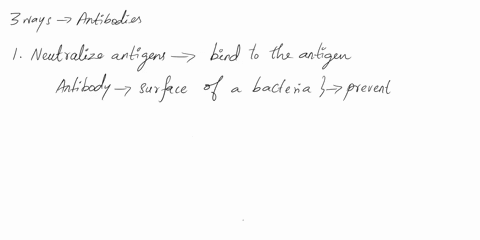 3 ways → Antibodies
1. Neutralize antigens → bind to the antigen
Antibody → surface of a bacteria } → prevent